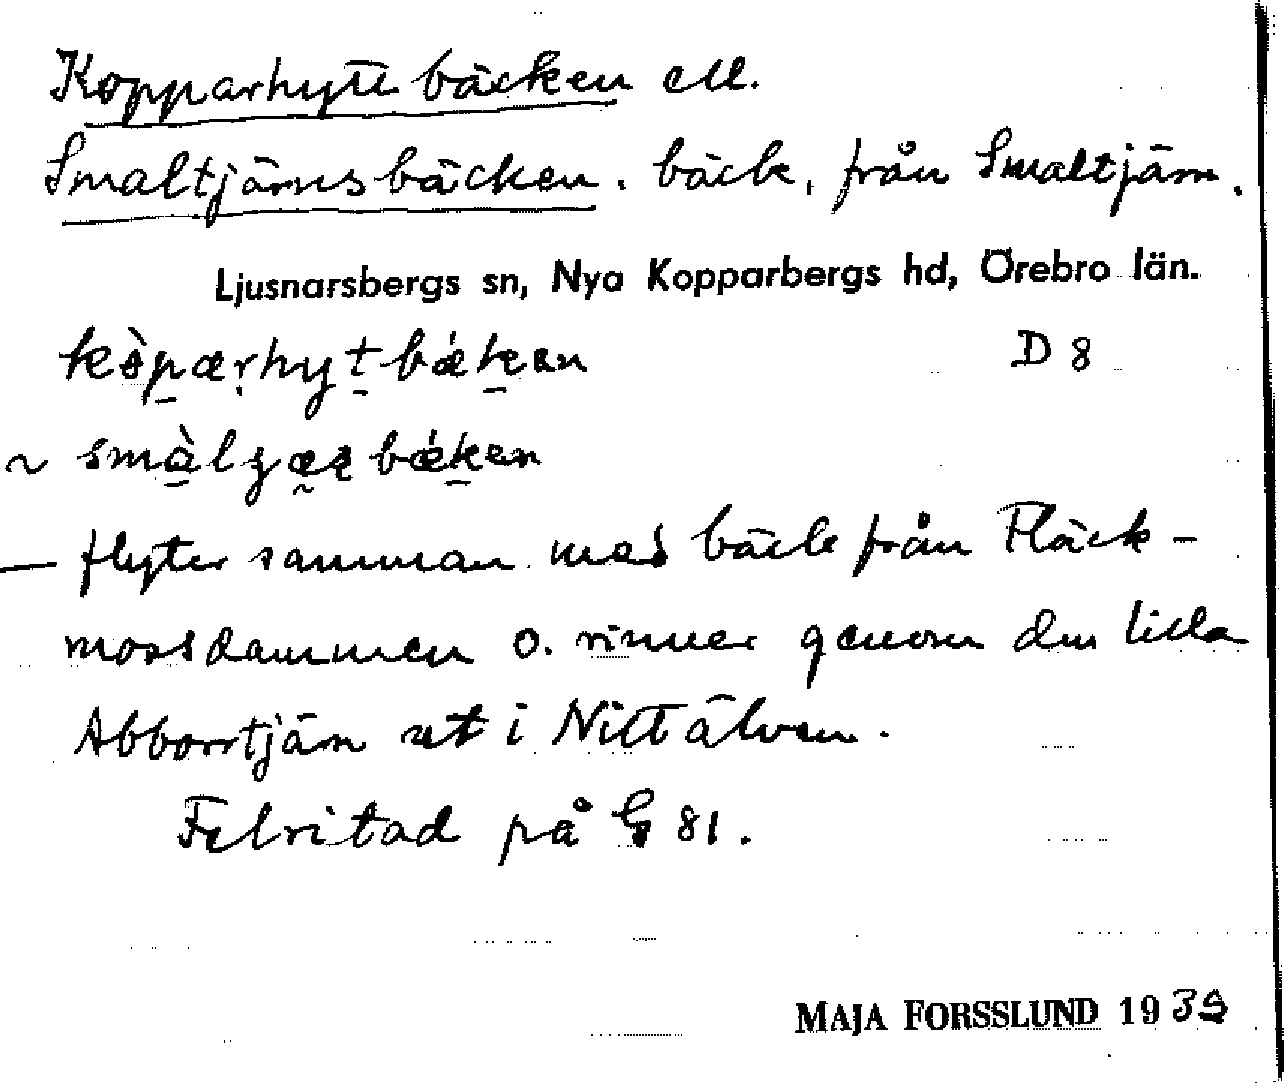 Kopparhyttbäcken ell.
Smaltjärnsbäcken. bäck, från Smaltjärn.
Ljusnarsbergs sn, Nya Kopparbergs hd, Örebro län.
D 8
~
— flyter samman med bäck från Fläck-
mossdammen o. rinner genom den lilla
Abborrtjärn ut i Nittälven.
Felritad på G 81.
MAJA FORSSLUND 1939